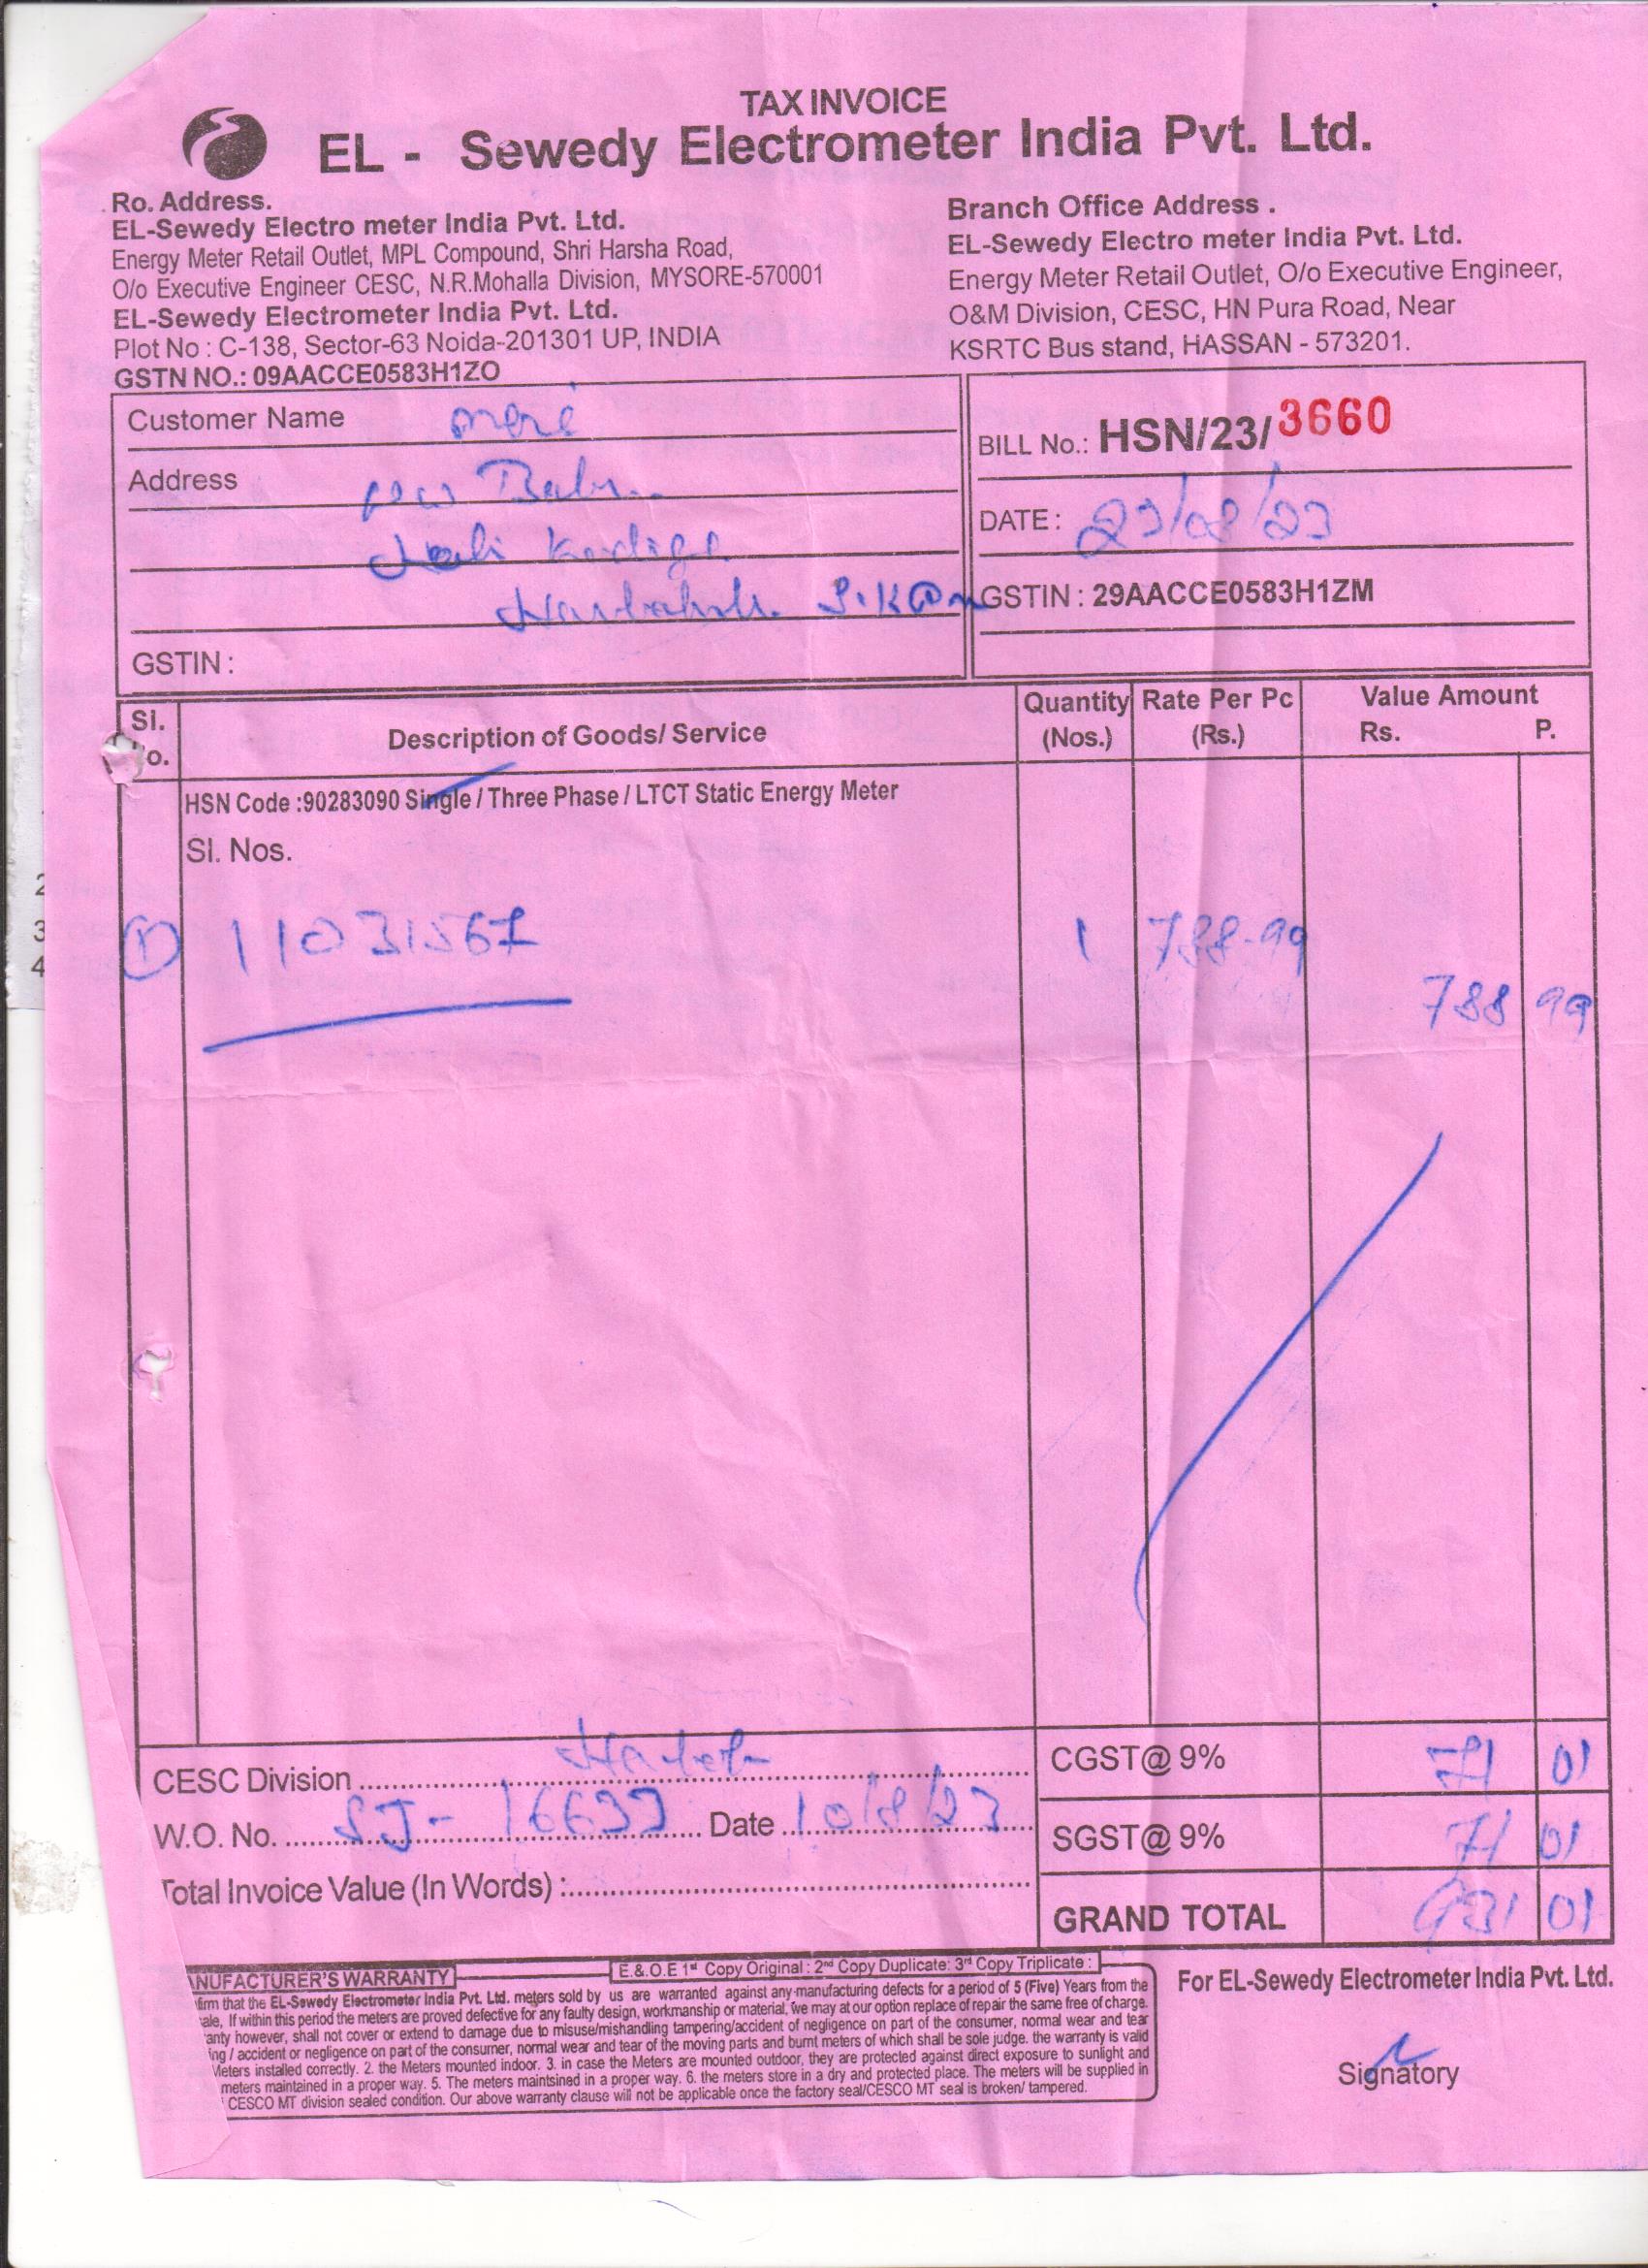 TAX INVOICE
EL - Sewedy Electrometer India Pvt. Ltd.
Ro. Address.
EL-Sewedy Electro meter India Pvt. Ltd.
Energy Meter Retail Outlet, MPL Compound, Shri Harsha Road,
O/o Executive Engineer CESC, N.R.Mohalla Division, MYSORE-570001
EL-Sewedy Electrometer India Pvt. Ltd.
Plot No : C-138, Sector-63 Noida-201301 UP, INDIA
GSTN NO.: 09AACCE0583H1ZO
Branch Office Address .
EL-Sewedy Electro meter India Pvt. Ltd.
Energy Meter Retail Outlet, O/o Executive Engineer,
O&M Division, CESC, HN Pura Road, Near
KSRTC Bus stand, HASSAN - 573201.
Customer Name
Address
GSTIN :
BILL No.: HSN/23/3660
DATE : 23/08/23
GSTIN : 29AACCE0583H1ZM
Sl. Description of Goods/ Service Quantity (Nos.) Rate Per Pc (Rs.) Value Amount Rs. P.
HSN Code :90283090 Single / Three Phase / LTCT Static Energy Meter
Sl. Nos.
1 11031567 1 788-99
788 99
CESC Division
W.O. No. SJ- 16633 Date 10/8/23
Total Invoice Value (In Words) :
CGST@ 9% 71 01
SGST@ 9% 71 01
GRAND TOTAL 931 01
ANUFACTURER'S WARRANTY
E.&.O.E 1st Copy Original : 2nd Copy Duplicate: 3rd Copy Triplicate :
firm that the EL-Sewedy Electrometer India Pvt. Ltd. meters sold by us are warranted against any manufacturing defects for a period of 5 (Five) Years from the
ale, If within this period the meters are proved defective for any faulty design, workmanship or material, we may at our option replace of repair the same free of charge.
anty however, shall not cover or extend to damage due to misuse/mishandling tampering/accident of negligence on part of the consumer, normal wear and tear
ing / accident or negligence on part of the consumer, normal wear and tear of the moving parts and burnt meters of which shall be sole judge. the warranty is valid
Meters installed correctly. 2. the Meters mounted indoor. 3. in case the Meters are mounted outdoor, they are protected against direct exposure to sunlight and
meters maintained in a proper way. 5. The meters maintsined in a proper way. 6. the meters store in a dry and protected place. The meters will be supplied in
CESCO MT division sealed condition. Our above warranty clause will not be applicable once the factory seal/CESCO MT seal is broken/ tampered.
For EL-Sewedy Electrometer India Pvt. Ltd.
Signatory